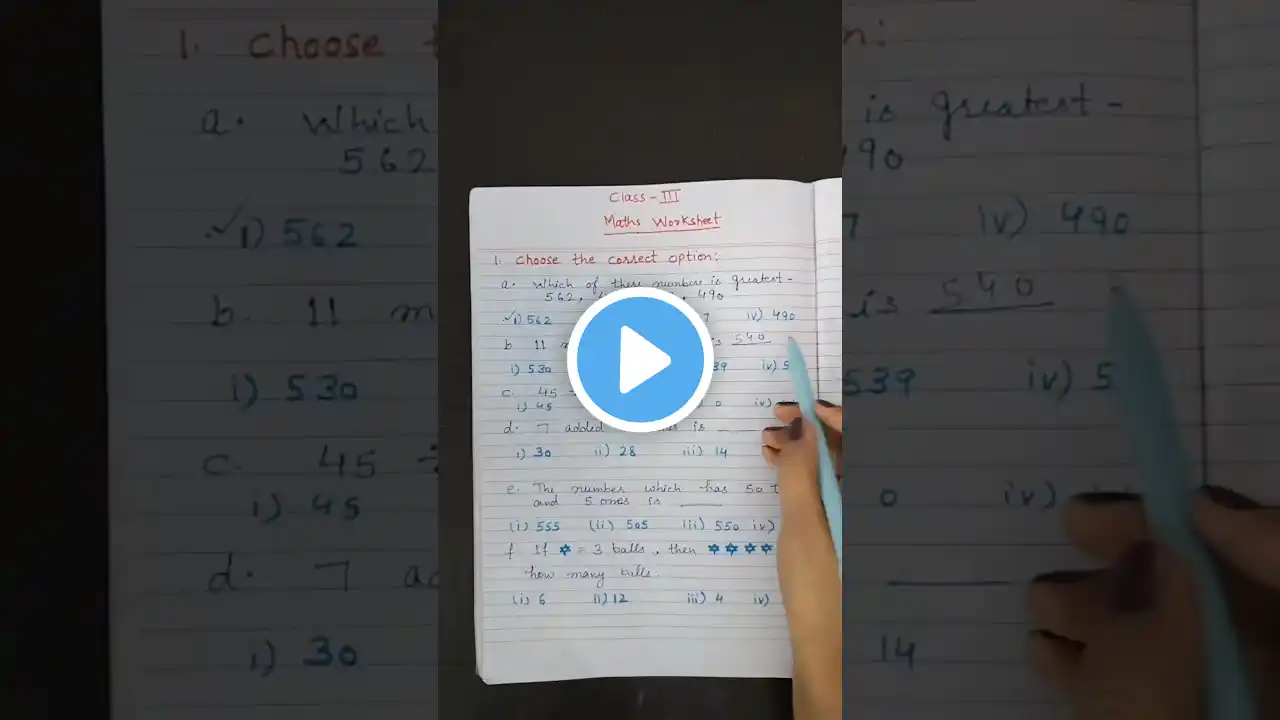 Class - III
Maths Worksheet
1. Choose the correct option:
a. Which of these numbers is greatest -
562, 490
i) 562 7 iv) 490
b 11 is 540
i) 530 39 iv) 5
c. 45
i) 45 0 iv)
d. 7 added is
i) 30 ii) 28 iii) 14
e. The number which has 50 t
and 5 ones is
(i) 555 (ii) 505 iii) 550 iv)
f If ✡ = 3 balls, then ✡ ✡ ✡ ✡
how many balls.
(i) 6 ii) 12 iii) 4 iv)